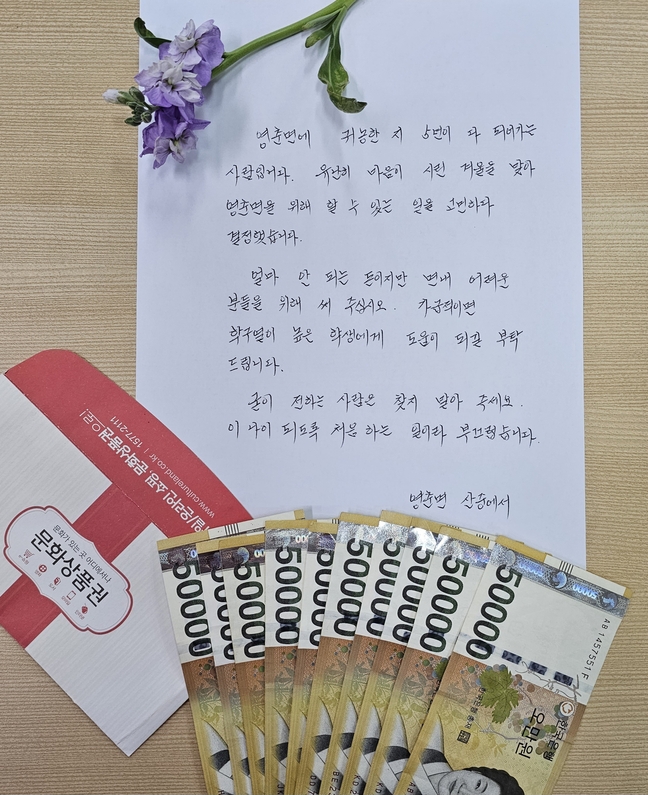 영춘면에 귀농한 지 5년이 다 되어가는
사람입니다. 유난히 마음이 시린 겨울을 맞아
영춘면을 위해 할 수 있는 일을 고민하다
결정했습니다.
얼마 안 되는 돈이지만 면내 어려운
분들을 위해 써 주십시오. 가급적이면
학구열이 높은 학생에게 도움이 되길 부탁
드립니다.
굳이 전하는 사람은 찾지 말아 주세요.
이 나이 되도록 처음 하는 일이라 부끄럽습니다.
영춘면 산골에서
온라인 쇼핑, 문화상품권으로!
www.cultureland.co.kr | 1577-2111
문화가 있는 곳 어디에서나
문화상품권
50000
50000
50000
50000
50000
50000
50000
50000
50000
50000
AB1457551F
한국은행
오만원